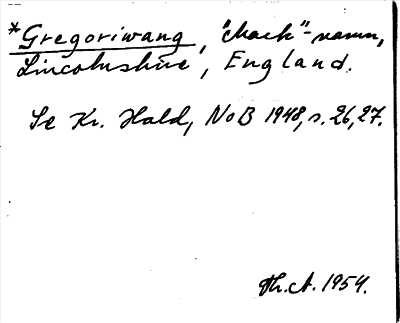 *Gregoriwang, "Mock"-namn,
Lincolnshire, England.
Se Kr. Hald, NoB 1948, s. 26, 27.
Th. A. 1954.